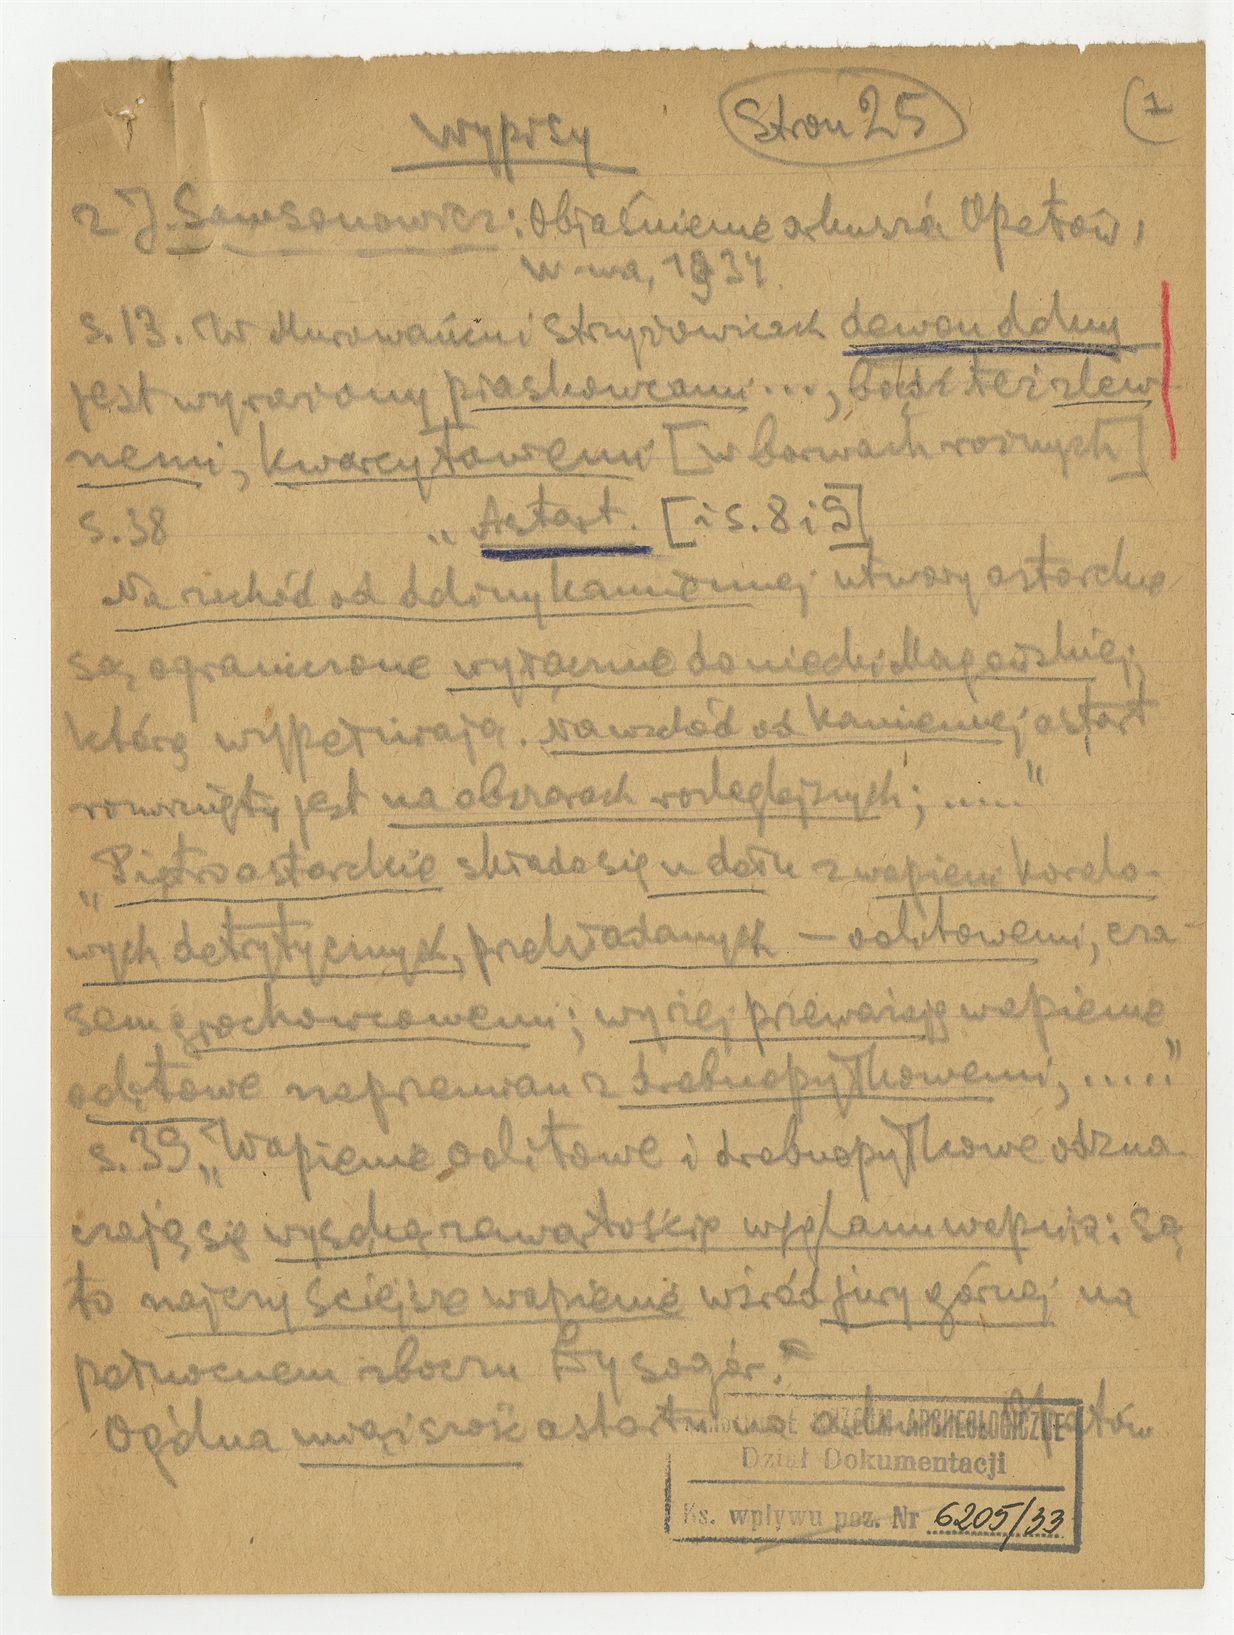 Wypisy Stron 25 (1
z J. Samsonowicz: Objaśnienie arkusza Opatów,
W-wa, 1934.
s. 13. W Murowańcu i Stryżowicach dewon dolny
jest wyrażony piaskowcami ..., bądź też zlew-
nemi, kwarcytowemi [w barwach rożnych]
s. 38 „Astart. [i s. 8 i 9]
Na zachód od doliny Kamiennej utwory astarckie
są ograniczone wyłącznie do niecki Magońskiej,
którą wypełniają. Na wschód od Kamiennej astart
rozwinięty jest na obszarach rozleglejszych; ....."
„Piętro astarckie składa się u dołu z wapieni koralo-
wych detrytycznych, przekładanych — oolitowemi, cza-
sem grochowcowemi; wyżej przeważają wapienie
oolitowe naprzemian z drobnopytkowemi, ....."
s. 39 „Wapienie oolitowe i drobnopytkowe odzna-
czają się wysoką zawartością węglanu wapnia: są
to najczyściejsze wapienie wśród jury górnej na
północnem zboczu Łysogór."
Ogólna miąższość astartu na arkuszu Opatów
MUZEUM ARCHEOLOGICZNE
Dział Dokumentacji
Ks. wpływu poz. Nr 6205/33